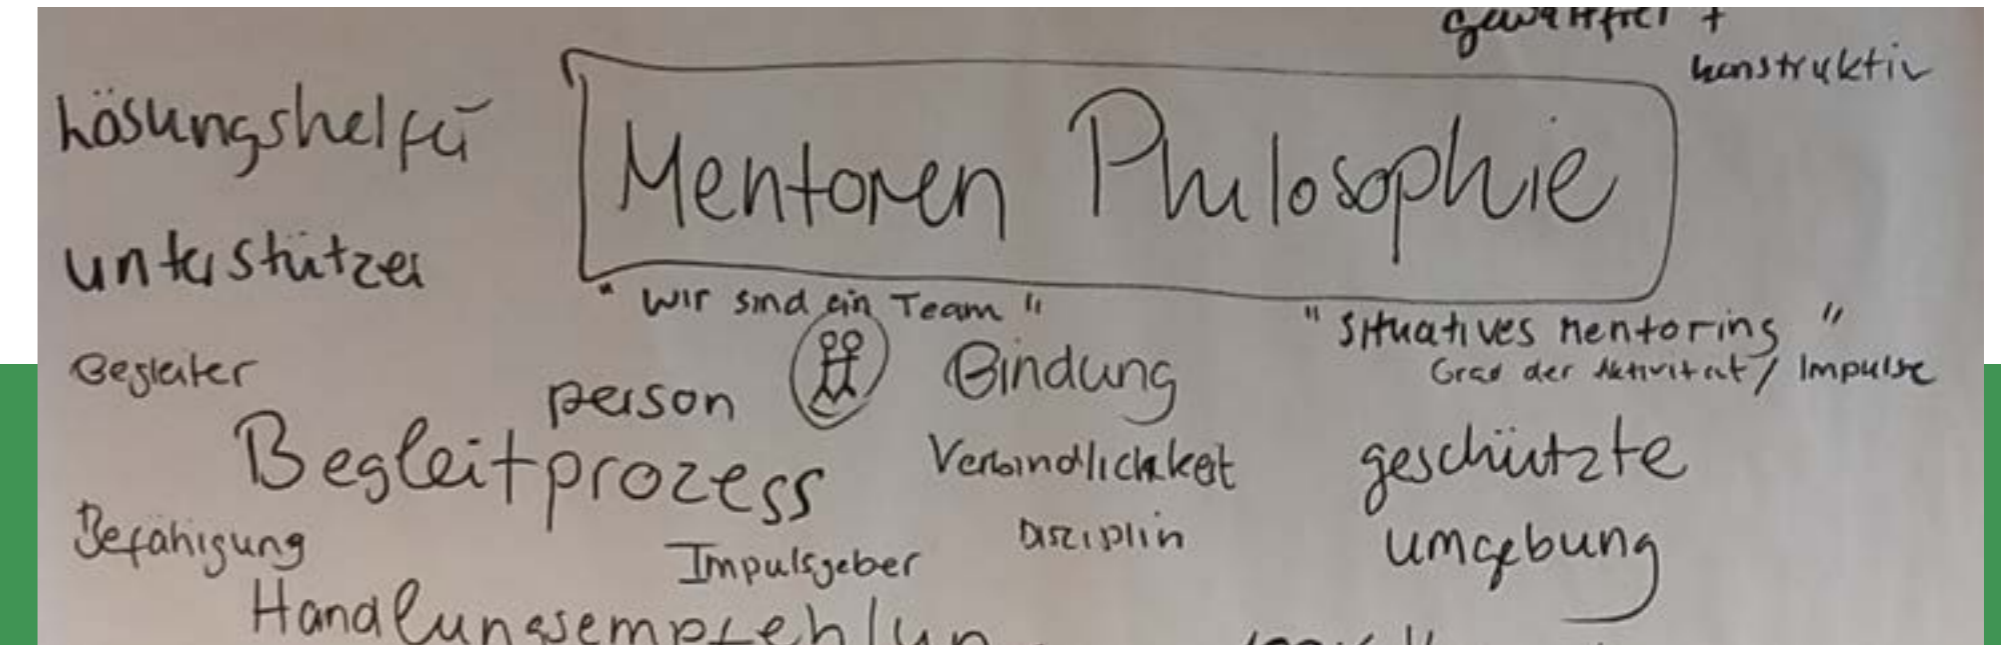 gewaltfrei +
konstruktiv
Lösungshelfer
Mentoren Philosophie
unterstützer
" Wir sind ein Team "
" Situatives Mentoring "
Grad der Aktivität / Impulse
Begleiter
person
Bindung
Begleitprozess
Verbindlichkeit
geschützte
umgebung
Befähigung
Impulsgeber
Disziplin
Handlungsempfehlun